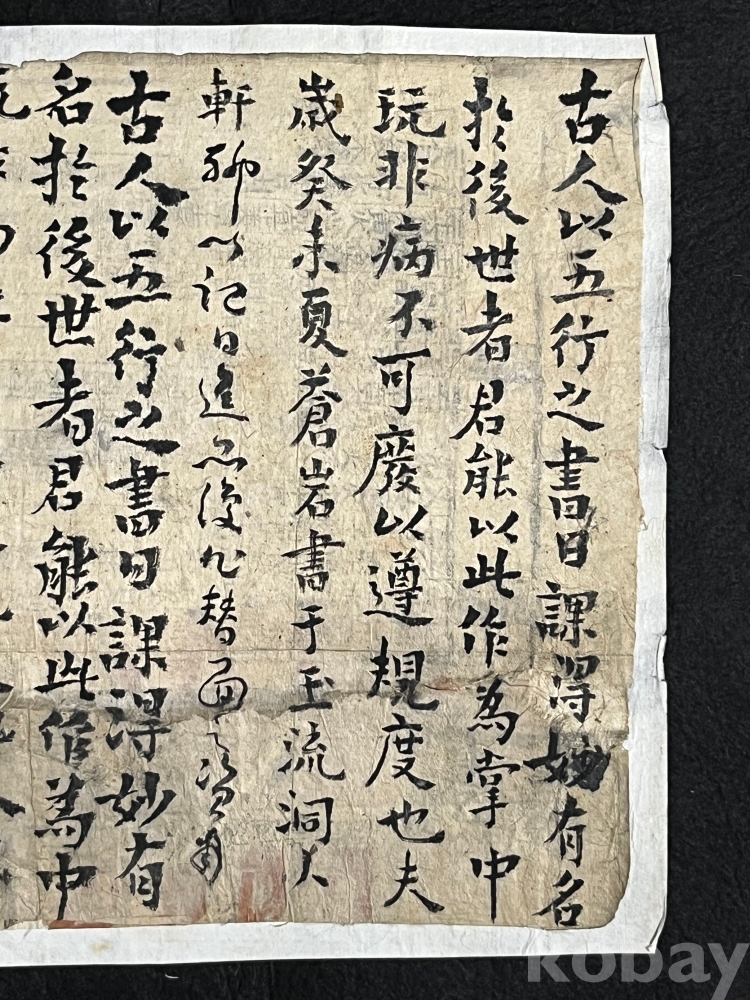 古人以五行之書日課得妙有名
於後世者君能以此作為掌中
玩非病不可廢以遵規度也夫
歲癸未夏蒼岩書于玉流洞人
軒聊以記日進
古人以五行之書日課得妙有
名於後世者君能以此作為中
kobay